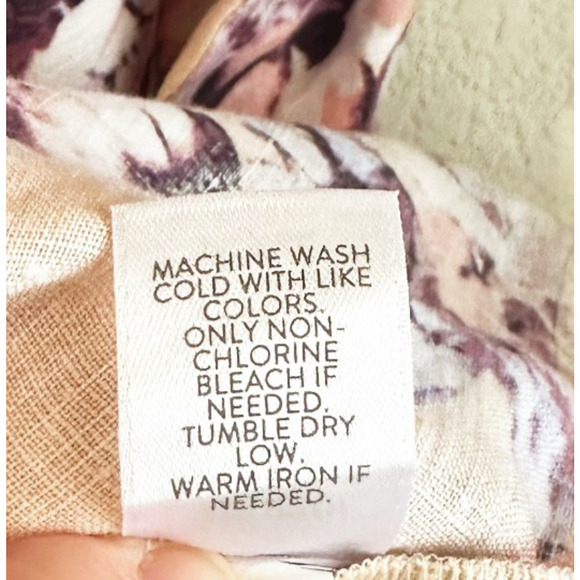 MACHINE WASH
COLD WITH LIKE
COLORS.
ONLY NON-
CHLORINE
BLEACH IF
NEEDED.
TUMBLE DRY
LOW.
WARM IRON IF
NEEDED.